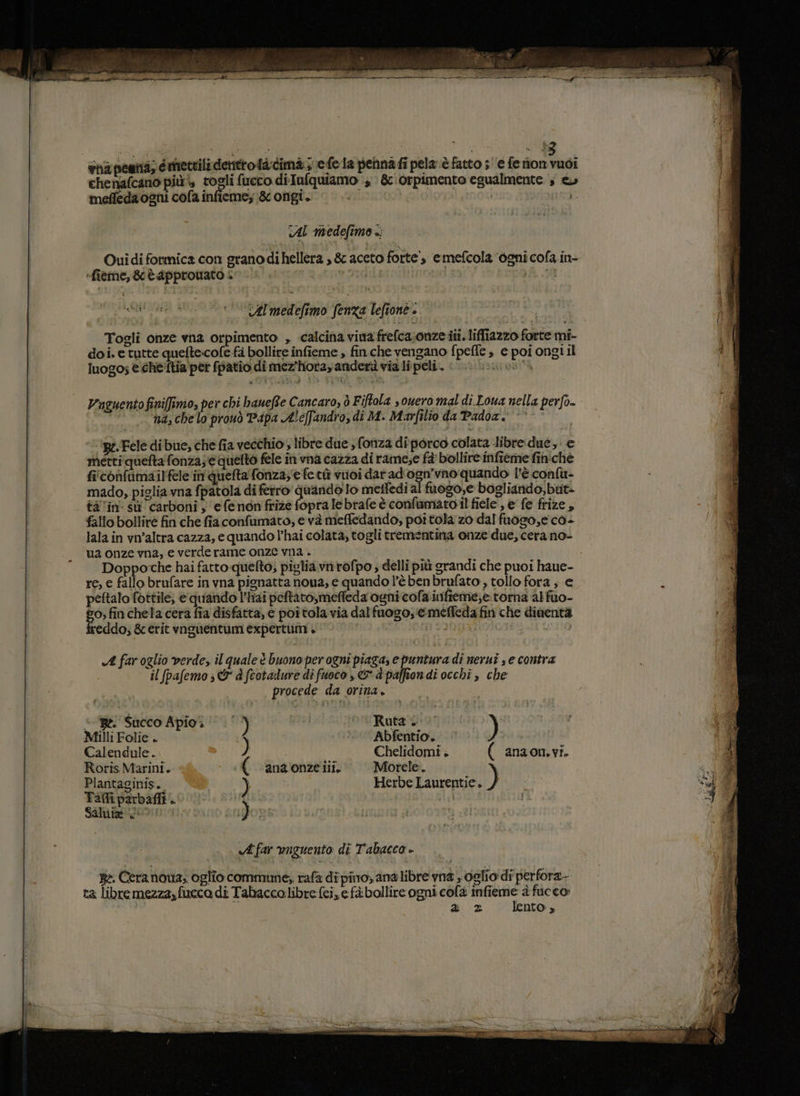 3
vna penna, & mettili dentro la cima ; e se la penna si pela è fatto ; e se non vuoi
che nascano più, togli succo di Iusquiamo , & orpimento egualmente , e
messeda ogni cosa insieme, & ongi.
Al medesimo.
Oui di formica con grano di hellera , & aceto forte, e mescola ogni cosa in-
sieme, & è approuato.
Al medesimo senza lesione.
Togli onze vna orpimento , calcina viua fresca onze iii. lissiazzo forte mi-
do i. e tutte queste cose fà bollire insieme , fin che vengano spesse , e poi ongi il
luogo; e che stia per spatio di mez'hora, anderà via li peli.
Vnguento finissimo, per chi hauesse Cancaro, ò Fistola , ouero mal di Loua nella perso-
na, che lo prouò Papa Alessandro, di M. Marsilio da Padoa.
℞. Fele di bue, che sia vecchio , libre due , sonza di porco colata libre due, e
metti questa sonza, e questo fele in vna cazza di rame, e fà bollire insieme fin che
si consuma il fele in questa sonza, e se tù vuoi dar ad ogn'vno quando l'è consu-
mado, piglia vna spatola di ferro quando lo messedi al fuogo, e bogliando, but-
ta in sù carboni , e se non frize sopra le brase è consumato il fiele , e se frize ,
fallo bollire fin che sia consumato, e và messedando, poi tola zo dal fuogo, e co-
lala in vn'altra cazza, e quando l'hai colata, togli trementina onze due, cera no-
ua onze vna, e verde rame onze vna .
Doppo che hai fatto questo, piglia vn rospo , delli più grandi che puoi haue-
re, e fallo brusare in vna pignatta noua, e quando l'è ben brusato , tollo fora , e
pestalo sottile, e quando l'hai pestato, messeda ogni cosa insieme, e torna al fuo-
go, fin che la cera sia disfatta, e poi tola via dal fuogo, e messeda fin che diuenta
freddo, & erit vnguentum expertum .
A far oglio verde, il quale è buono per ogni piaga, e puntura di nerui , e contra
il spasemo , & à scotadure di fuoco , & à passion di occhi , che
procede da orina.
℞. Succo Apio. Ruta .
Milli Folie . Absentio.
Calendule . Chelidomi . ana on. vi.
Roris Marini . ana onze iii. Morele .
Plantaginis . Herbe Laurentie .
Tassi parbassi .
Saluiæ .
A far vnguento di Tabacco .
℞. Cera noua, oglio commune, rasa di pino, ana libre vna , oglio di perfora-
ta libre mezza, succo di Tabacco libre sei, e fà bollire ogni cosa insieme à fuoco
a 2 lento,